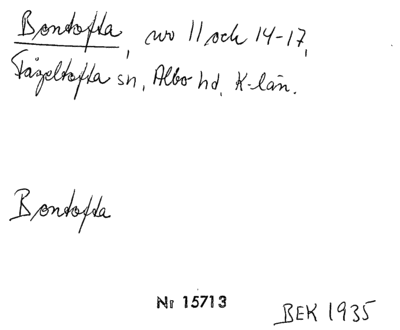 Bontofta, no 11 och 14-17,
Fågeltofta sn, Albo hd, K-län.
Bontofta
Nr 15713
BEK 1935